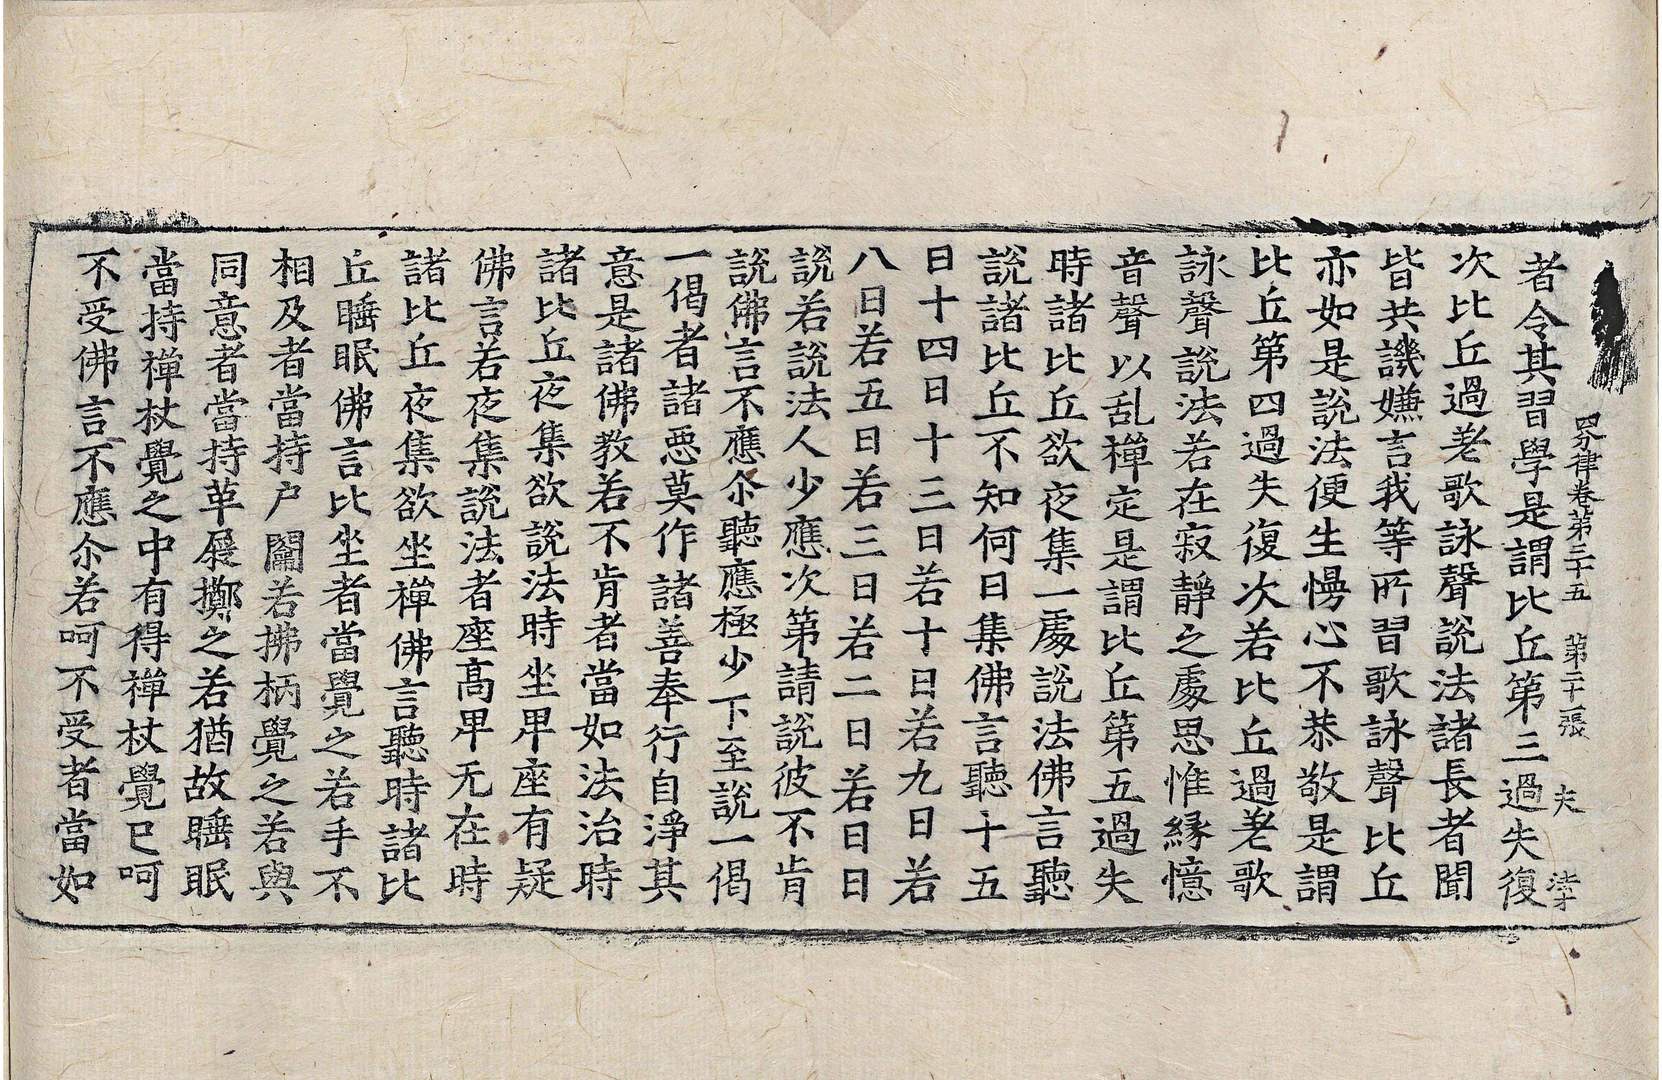 四分律卷第三十五 第二十一張 夫 法才
者令其習學是謂比丘第三過失復
次比丘過差歌詠聲說法諸長者聞
皆共譏嫌言我等所習歌詠聲比丘
亦如是說法便生慢心不恭敬是謂
比丘第四過失復次若比丘過差歌
詠聲說法若在寂靜之處思惟緣憶
音聲以乱禪定是謂比丘第五過失
時諸比丘欲夜集一處說法佛言聽
說諸比丘不知何日集佛言聽十五
日十四日十三日若十日若九日若
八日若五日若三日若二日若日日
說若說法人少應次第請說彼不肯
說佛言不應尒聽應極少下至說一偈
一偈者諸惡莫作諸善奉行自淨其
意是諸佛教若不肯者當如法治時
諸比丘夜集欲說法時坐卑座有疑
佛言若夜集說法者座高卑无在時
諸比丘夜集欲坐禪佛言聽時諸比
丘睡眠佛言比坐者當覺之若手不
相及者當持户闔若拂柄覺之若與
同意者當持革屣擲之若猶故睡眠
當持禪杖覺之中有得禪杖覺已呵
不受佛言不應尒若呵不受者當如